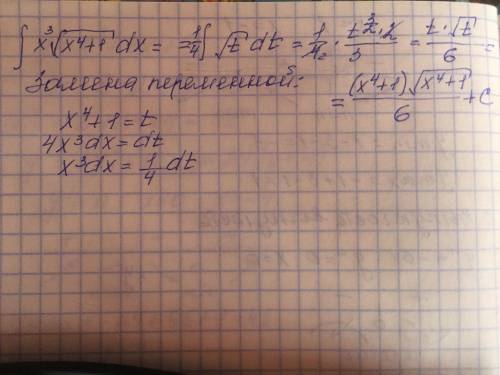 ∫ x³√(x⁴+1) dx = =1/4 ∫ √t dt = 1/4₂ · t^(3/2)·2/3 = t·√t/6 =
Замена переменной:
= (x⁴+1)√(x⁴+1)/6 + C
x⁴+1=t
4x³dx=dt
x³dx=1/4 dt